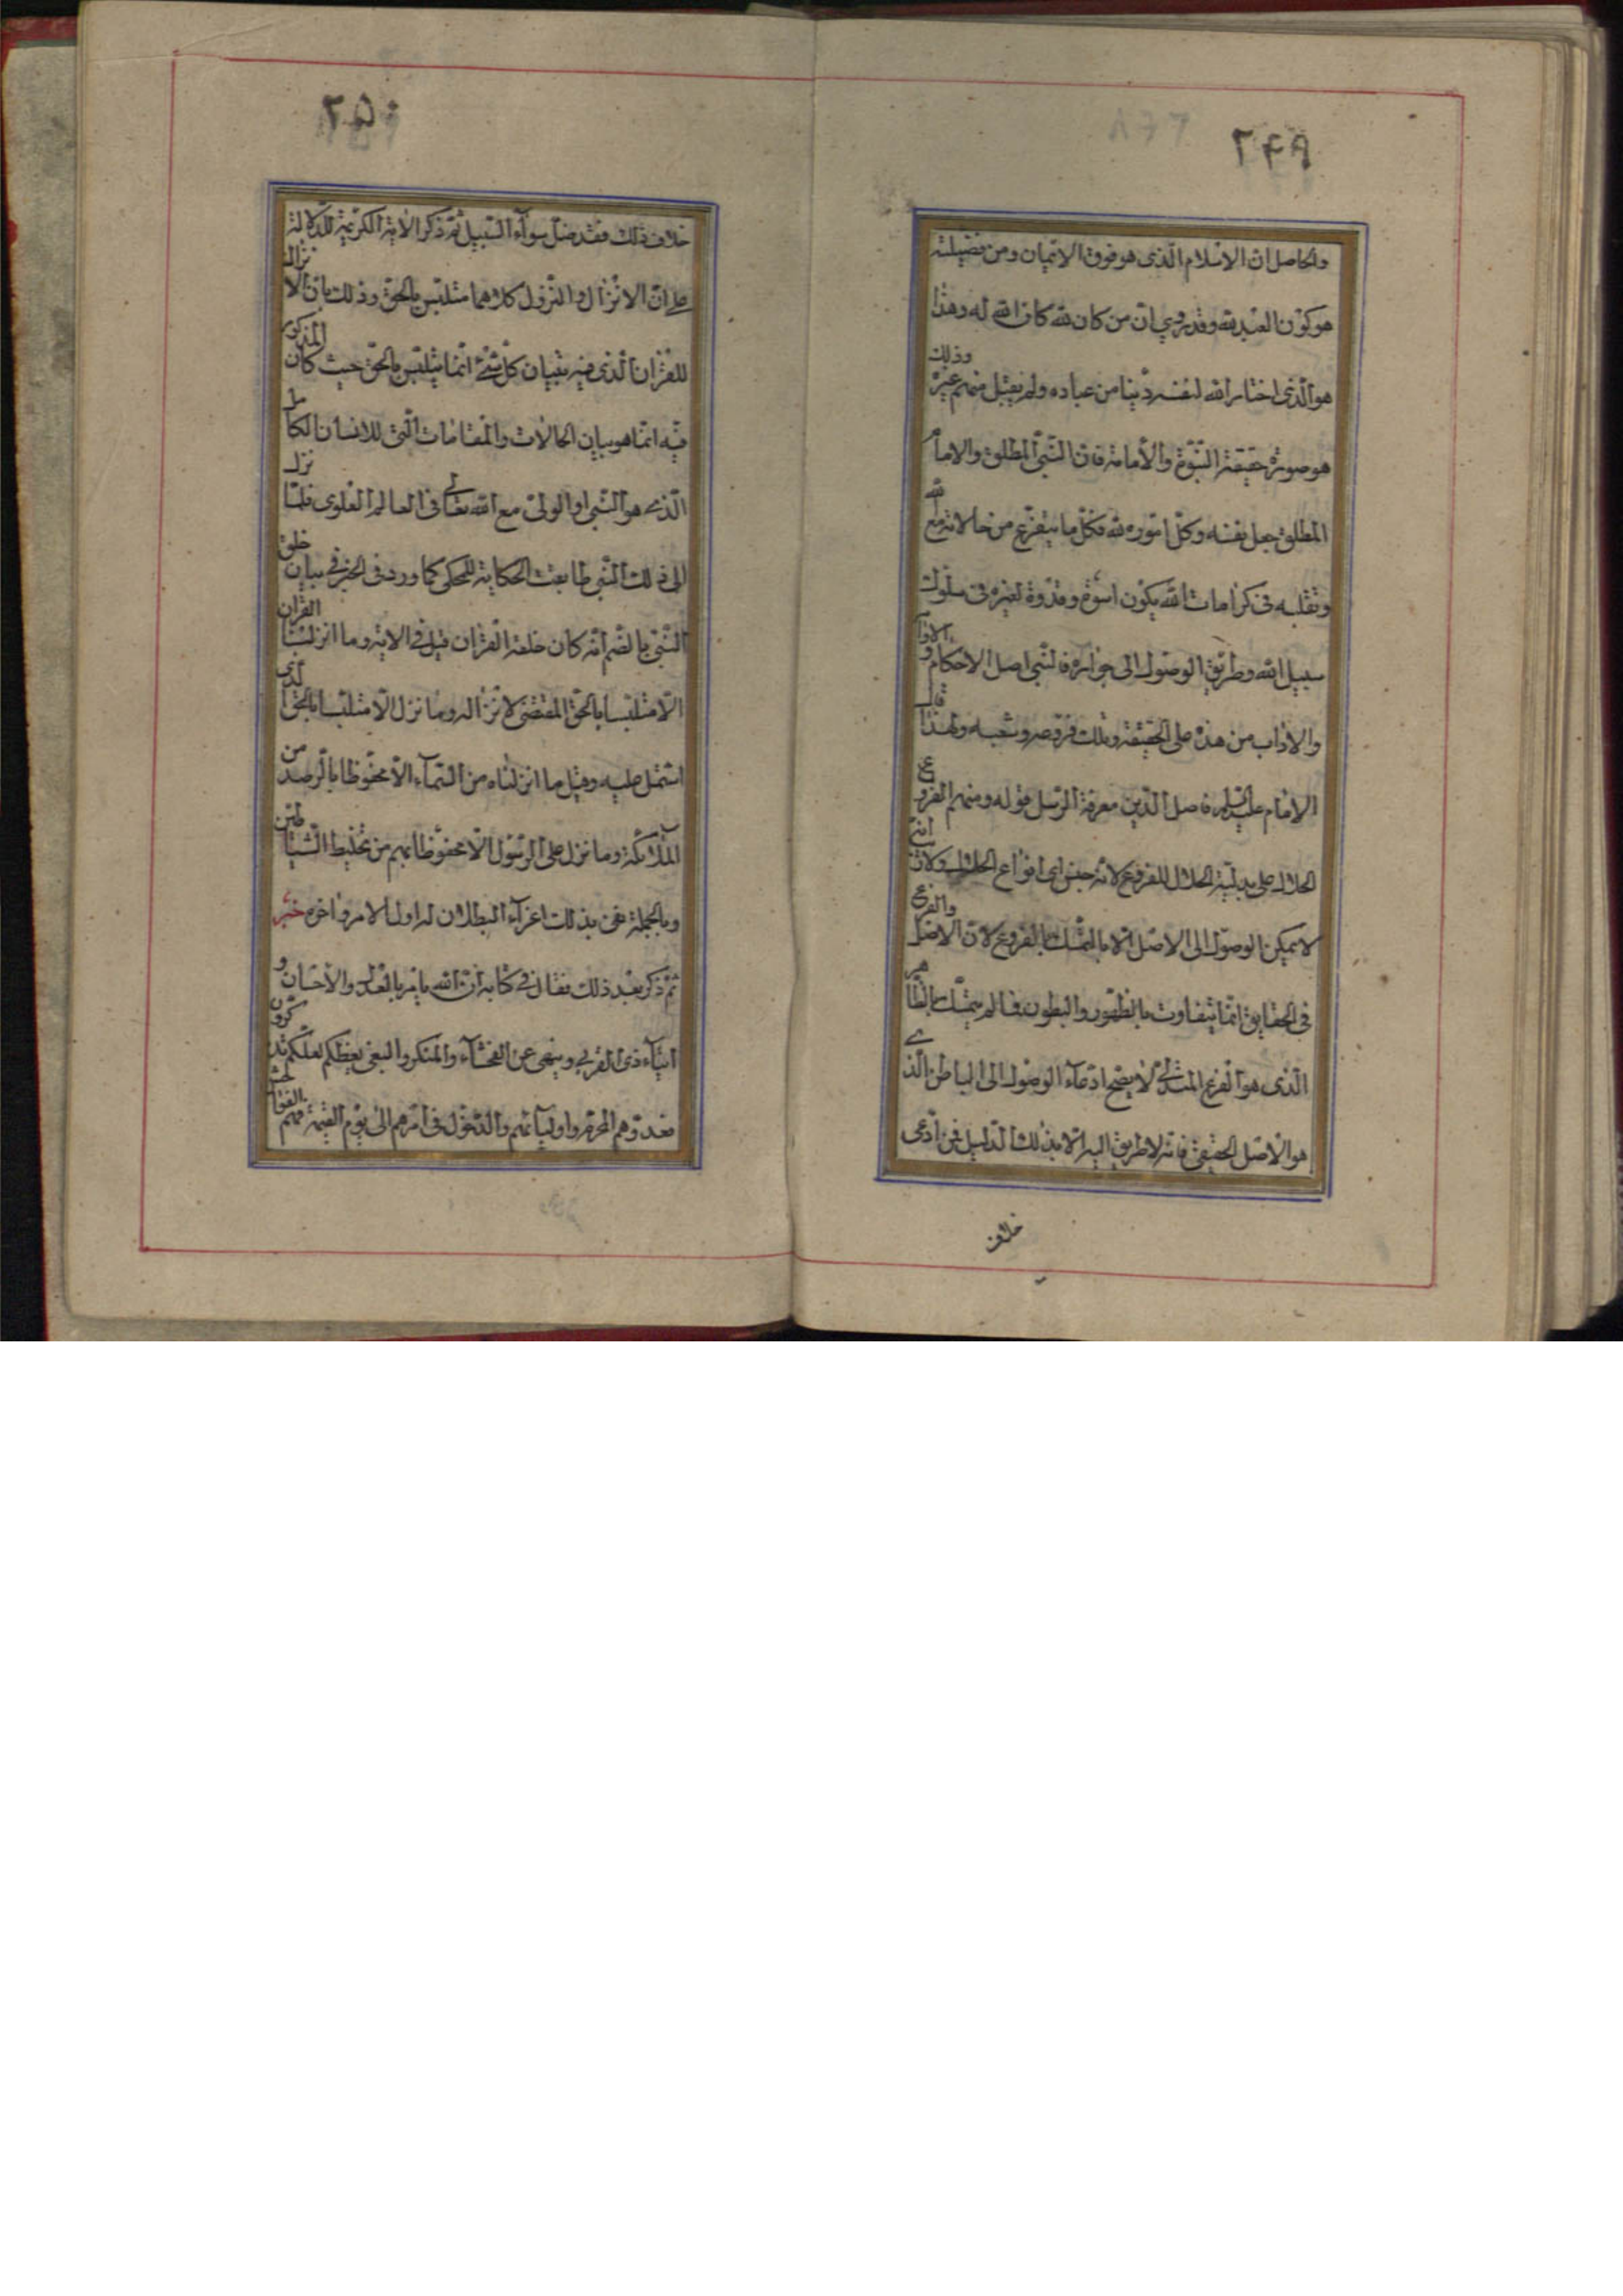 ۲۴۹
والحاصل ان الاسلام الذى هو فوق الايمان ومن فضيلته
هو كون العبد لله وقد روي ان من كان لله كان الله له وهذا
هو الذى اختار الله لنفسه دينا من عباده ولم يقبل منهم غيره وذلك
هو صورة حقيقة النبوة والامامة فان النبي المطلق والامام
المطلق جعل نفسه وكل اموره لله فكل ما يتفرع من حالاته مع الله
وتقلبه فى كرامات الله يكون اسوة وقدوة لغيره فى سلوك
سبيل الله وطريق الوصول الى جواره فالنبي اصل الاحكام و
والاداب من هذه على الحقيقة وتلك فروعه وشعبه ولهذا قال
الامام عليه السلم فاصل الدين معرفة الرسل قوله ومنهم الفروع
الحلال على بدلية الحلال للفروع لانه جنس اى انواع الحلال ولانه
لا يمكن الوصول الى الاصل الا بالتمسك بالفروع لان الاصل والفرع
فى الحقايق انما يتفاوت بالظهور والبطون فما لم يتمسك بالظاهر
الذى هو الفرع المتدلى لا يصح ادعاء الوصول الى الباطن الذي
هو الاصل الحقيقى فانه لا طريق اليه الا بذلك الدليل فمن ادعى
خلاف
۲۵۰
خلاف ذلك فقد ضل سواء السبيل ثم ذكر الاية الكريمة للدلالة
على ان الانزال والنزول كلاهما متلبس بالحق وذلك بان الانزال
للقران الذى فيه تبيان كل شئ انما يتلبس بالحق حيث كان المذكور
فيه انما هو بيان الحالات والمقامات التى للانسان الكامل
الذى هو النبي او الولى مع الله تعالى فى العالم العلوى فلما نزل
الى ذلك النبي طابقت الحكاية للمحكى كما ورد فى الخبر فى بيان خلق
النبي بالضم انه كان خلقه القران قيل فى الاية وما انزلنا القران
الا متلبسا بالحق المقتضى لانزاله وما نزل الا متلبسا بالحق الذى
اشتمل عليه وقيل ما انزلناه من السماء الا محفوظا بالرصد من
الملائكة وما نزل على الرسول الا محفوظا بهم من تخليط الشياطين
وبالجملة نفى بذلك اعتراء البطلان له اول الامر واخره خبر
ثم ذكر بعد ذلك فقال فى كتابه ان الله يامر بالعدل والاحسان و
ايتاء ذى القربى وينهى عن الفحشاء والمنكر والبغى يعظكم لعلكم تذكرون
فعدوهم المحرم واولياءهم والدخول فى امرهم الى يوم القيمة فهم الفواحش